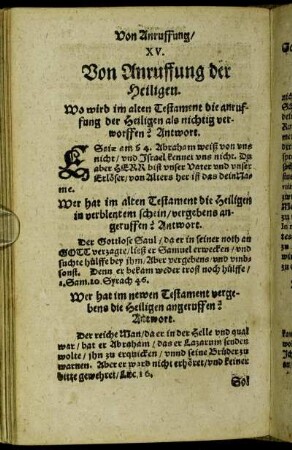 Von Anruffung/
XV.
Von Anruffung der
Heiligen.
Wo wird im alten Testament die anruf-
fung der Heiligen als nichtig ver-
worffen? Antwort.
ESaiæ am 64. Abraham weiß von uns
nicht/ vnd Israel kennet vns nicht. Du
aber HERR bist vnser Vater vnd vnser
Erlöser/ von Alters her ist das dein Na-
me.
Wer hat im alten Testament die Heiligen
in verblentem schein/ vergebens an-
geruffen? Antwort.
Der Gottlose Saul/ da er in seiner noth an
GOTT verzagte/ ließ er Samuel erwecken/ vnd
suchte hülffe bey ihm/ Aber vergebens vnd vmb-
sonst. Denn er bekam weder trost noch hülffe/
1. Sam. 10. Syrach 46.
Wer hat im newen Testament verge-
bens die Heiligen angeruffen?
Antwort.
Der reiche Man/ da er in der Helle vnd qual
war/ bat er Abraham/ das er Lazarum senden
wolte/ jhn zu erquicken/ vnnd seine Brüder zu
warnen. Aber er ward nicht erhöret/ vnd keiner
bitze gewehret/ Luc. 16.
Sol